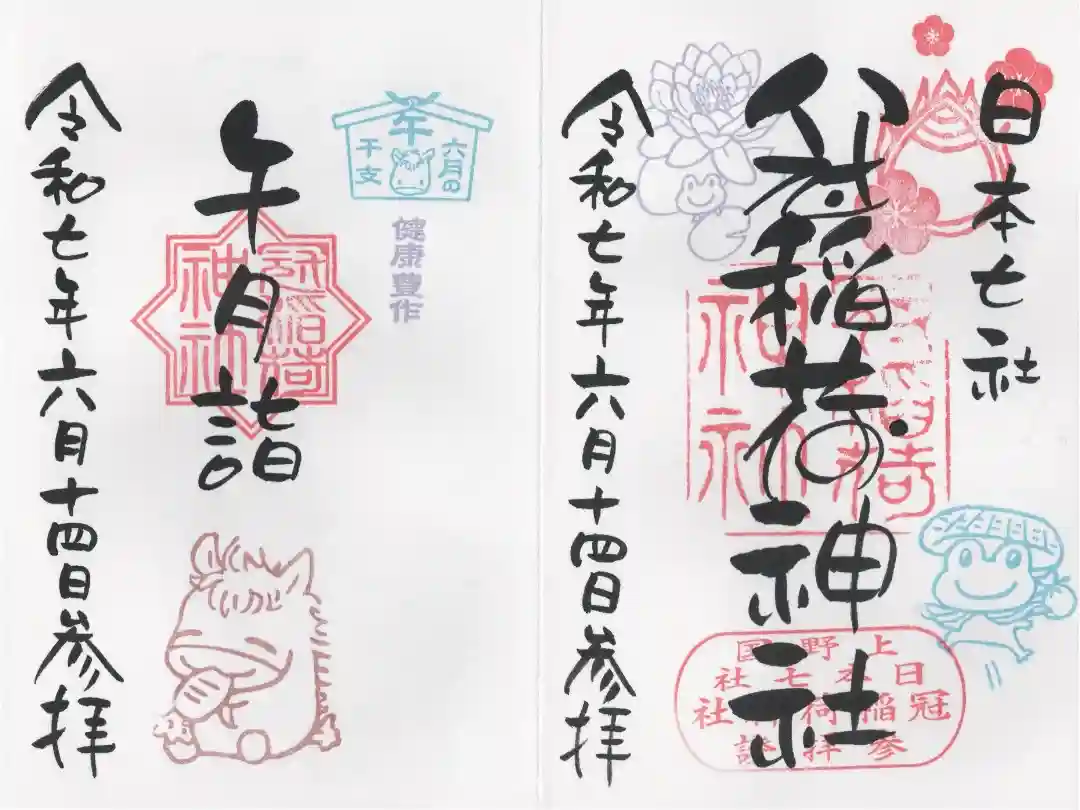 日本七社
冠稲荷神社
冠稲荷
神社
上野国
日本七社
冠稲荷神社
参拝證
令和七年六月十四日参拝
午
六月の
干支
健康豊作
午月詣
冠稲荷
神社
令和七年六月十四日参拝